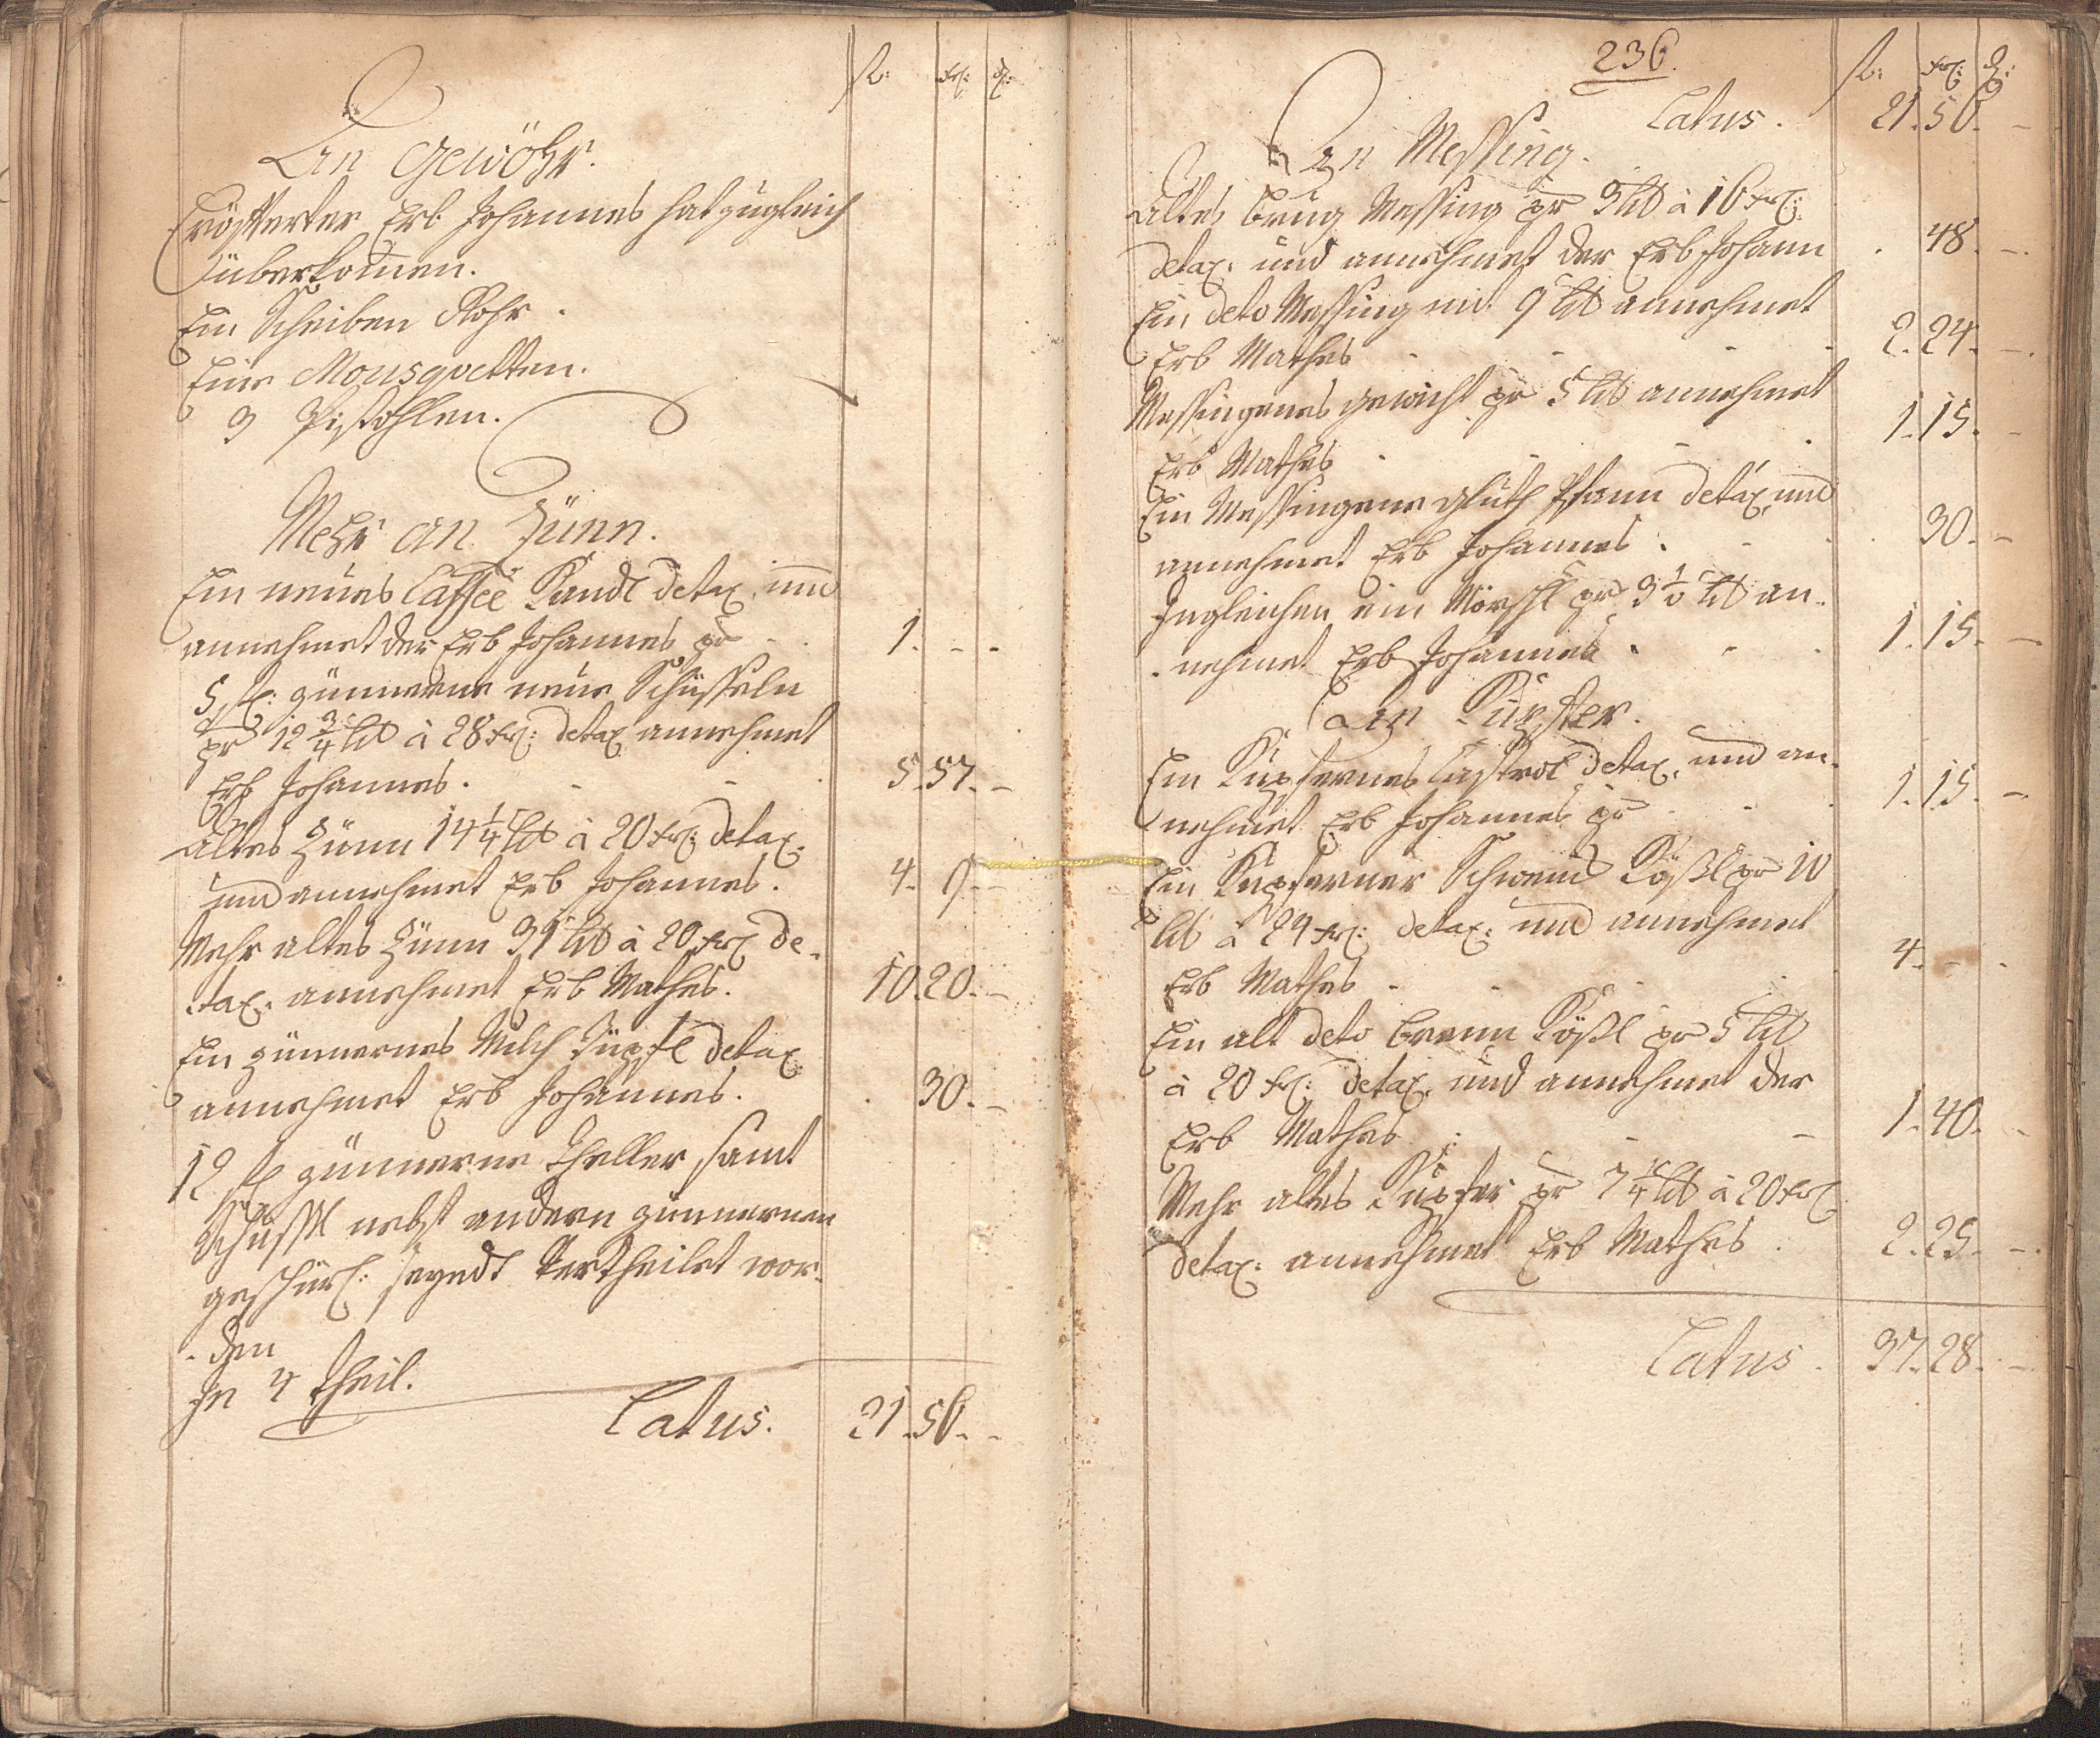 fl: kr: d:
An Gewöhr.
Erösterter Erb Johannes hat zugleich
überkomen.
Ein Scheiben Rohr.
Eine Mousqvetten.
3 Pistohlen.
Mehr an Zünn.
Ein neües Caffée Kandl detax. und
annehmet der Erb Johannes pr - . 1. - -
5 st: zünnerne neüe Schüsseln
pr 12 3/4 lb à 28 kr: detax annehmet
Erb Johannes. - - 5. 57. -
Altes Zünn 14 1/4 lb à 20 kr: detax.
und annehmet Erb Johannes. 4. 9. -
Mehr altes Zünn 31 lb à 20 kr de-
.tax. annehmet Erb Mathes. 10. 20. -
Ein zünnernes Milch Tüpfl detax:
annehmet Erb Johannes. . 30. -
12 st zünnerne Theller, samt
Schüssl nebst andern zünnernen
geschürl: seyndt vertheilet wor-
.den
In 4 Theil.
Latus. 21. 56. -
236.
fl: kr: d:
Latus. 21. 56. -
An Messing.
Altes brug Messing pr 3 lb à 16 kr:
detax. und annehmet der Erb Johann . 48. -
Ein deto Messing mit 9 lb annehmet
Erb Mathes - - - - 2. 24. -
Messingenes gewicht pr 5 lb annehmet
Erb Mathes - - - 1. 15. -
Ein Messingene Gluth Pfann detax. und
annehmet Erb Johannes. - - 30. -
Ingleichen ein Mörschl pr 3 1/2 lb an-
.nehmet Erb Johannes. - - 1. 15. -
An Kupfer.
Ein Kupfernes Castrol detax. und an-
nehmet Erb Johannes pr - - 1. 15. -
Ein Kupferner Schwend Kößl pr 10
lb à 24 kr: detax: und annehmet
Erb Mathes - - - 4. - -
Ein alt deto brenn Kößl pr 5 lb
à 20 kr: detax. und annehmet der
Erb Mathes - - - 1. 40. -
Mehr altes Kupfer pr 7 1/4 lb à 20 kr
detax: annehmet Erb Mathes . 2. 25. -
Latus . 37. 28. -